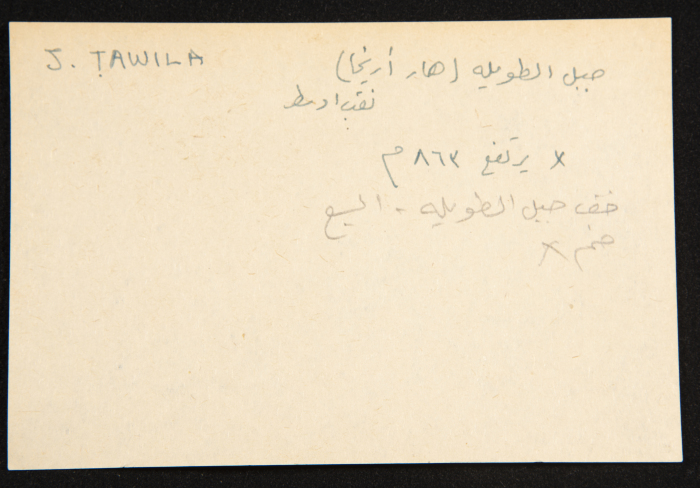 J. ṬAWILA
جبل الطويله (هار أريخا)
نقب اوسط
x يرتفع ٨٦٣ م
خلف جبل الطويله -
ضخم x